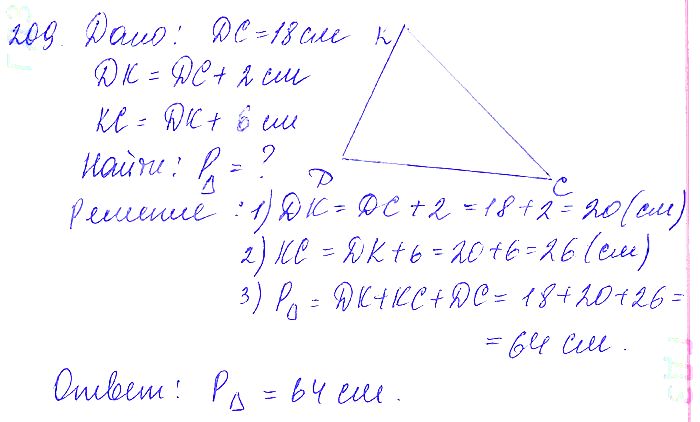 209. Дано: DC = 18 см
DK = DC + 2 см
KC = DK + 6 см
Найти: P△ = ?
K
D
C
Решение: 1) DK = DC + 2 = 18 + 2 = 20 (см)
2) KC = DK + 6 = 20 + 6 = 26 (см)
3) P△ = DK + KC + DC = 18 + 20 + 26 =
= 64 см.
Ответ: P△ = 64 см.